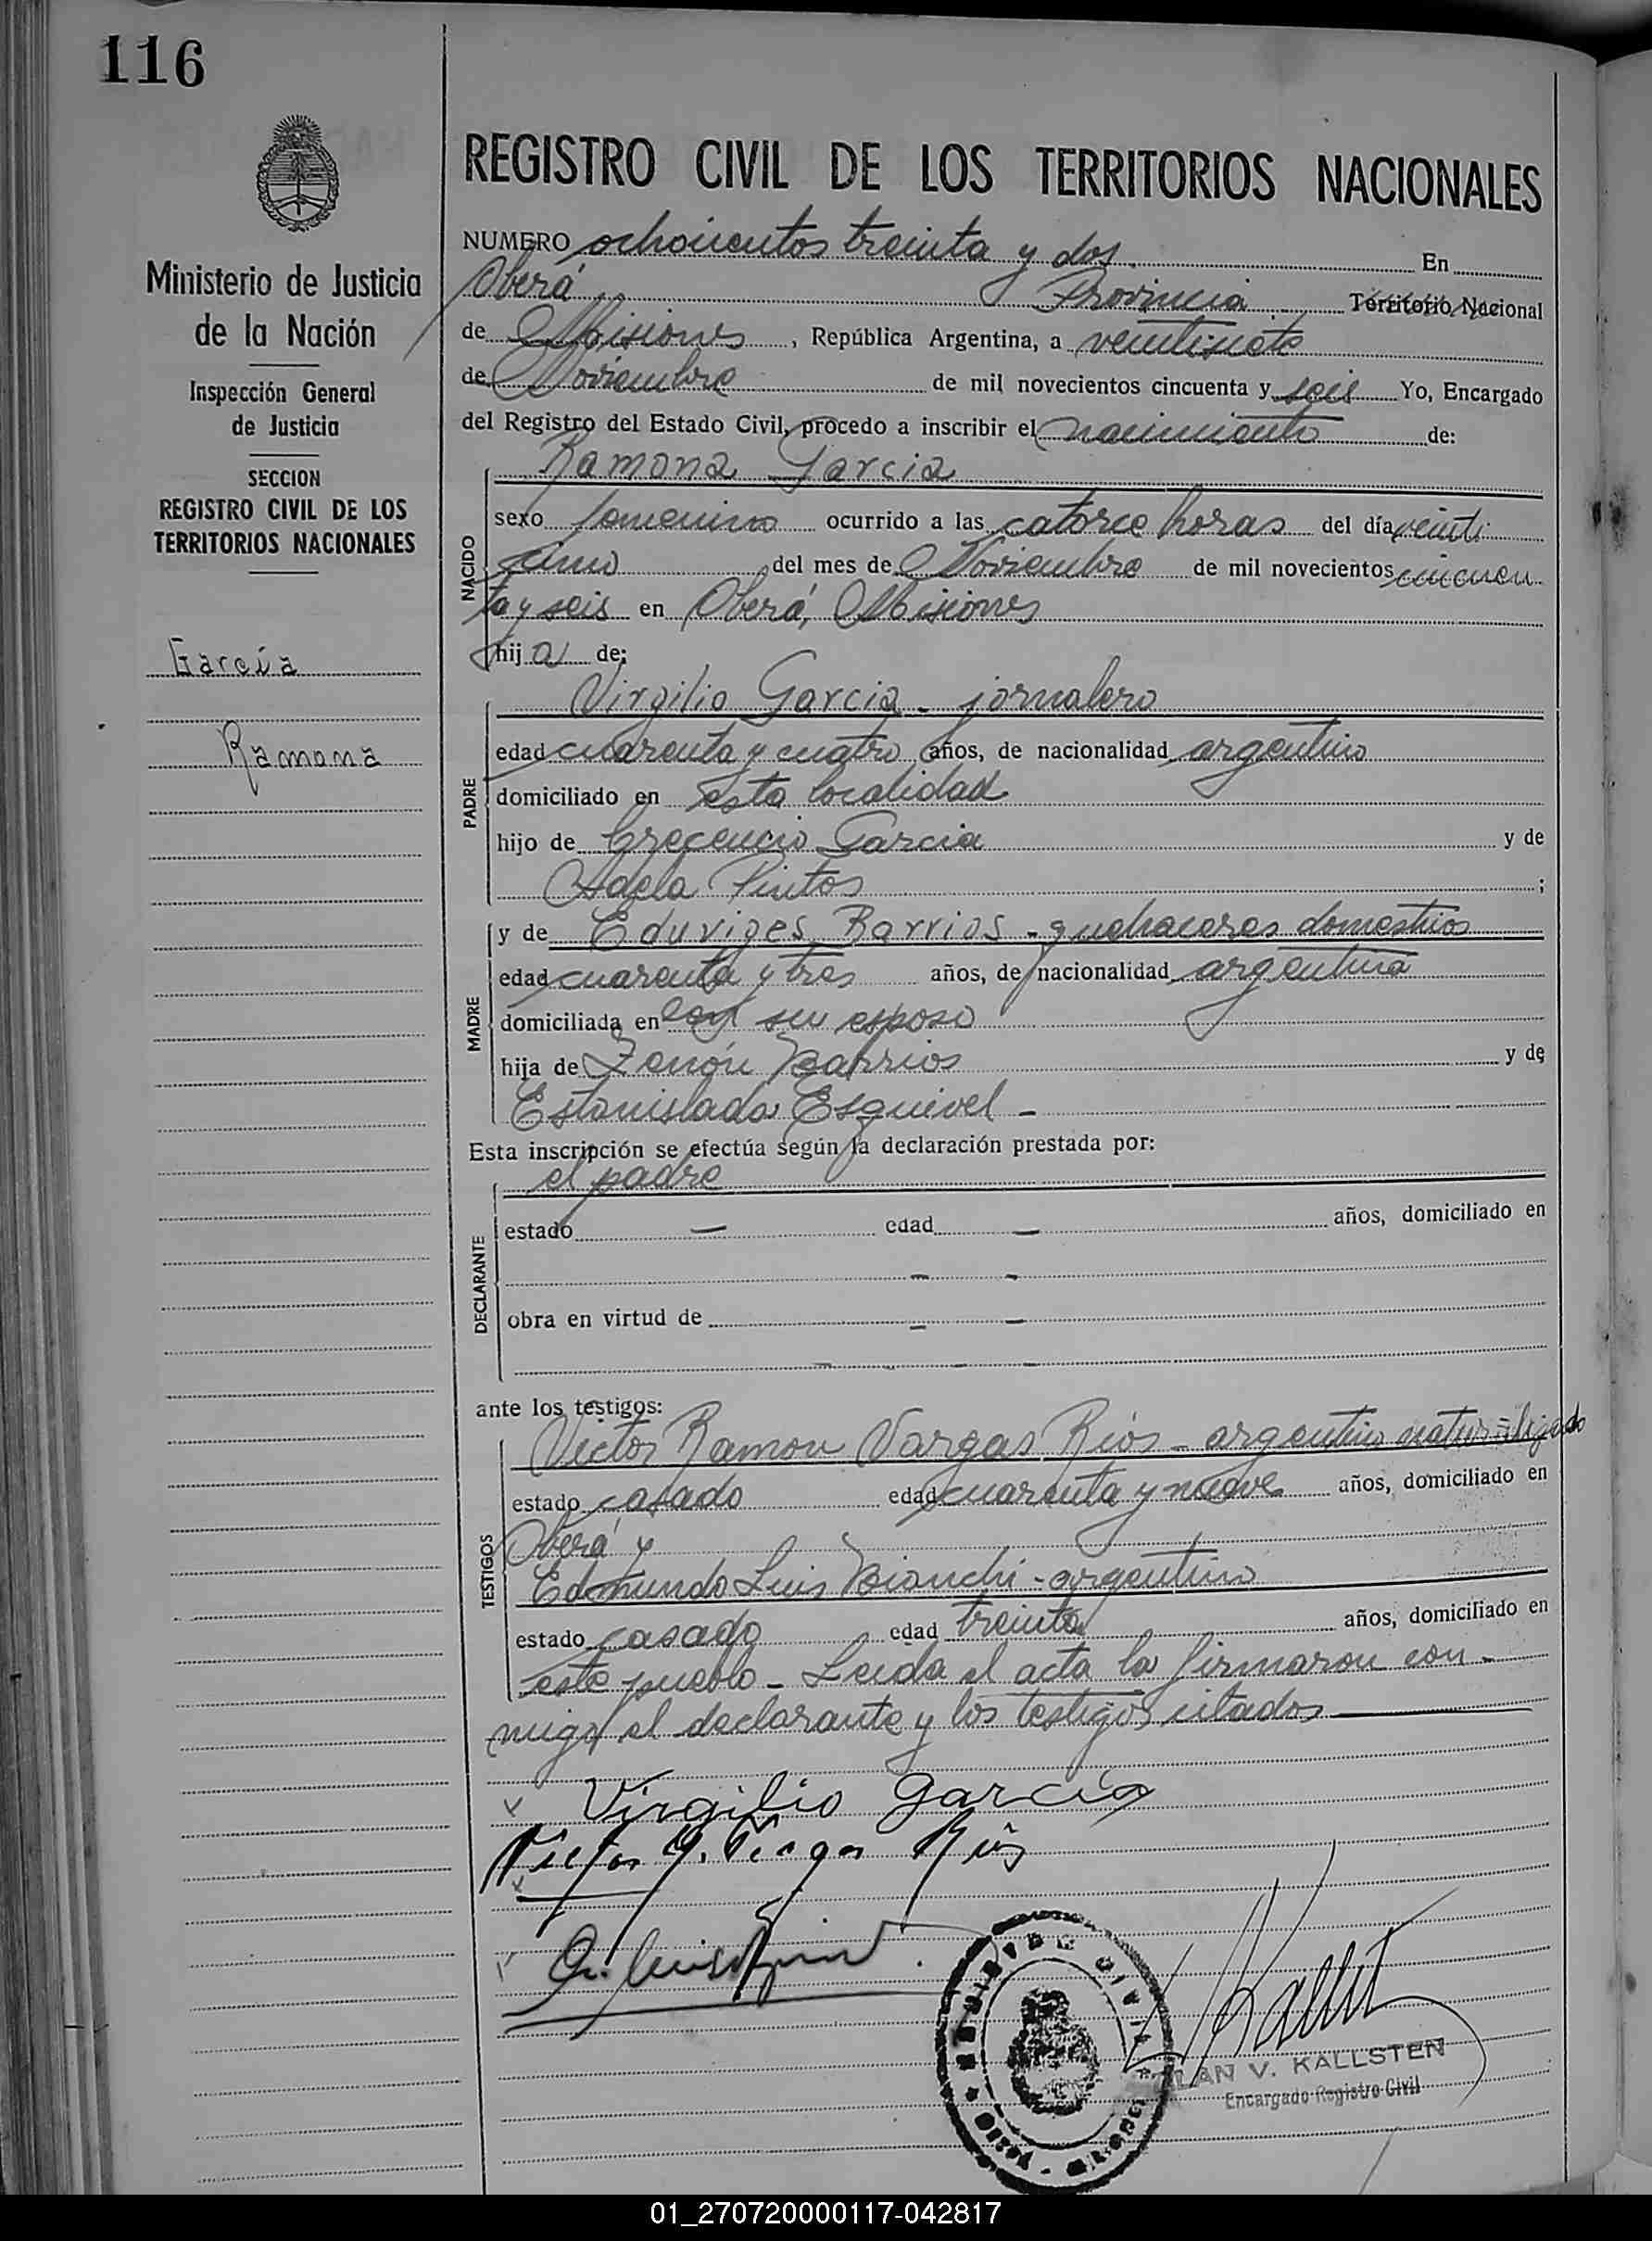 116
Ministerio de Justicia
de la Nación
Inspección General
de Justicia
SECCION
REGISTRO CIVIL DE LOS
TERRITORIOS NACIONALES
García
Ramona
REGISTRO CIVIL DE LOS TERRITORIOS NACIONALES
NUMERO ochocientos treinta y dos. En
Oberá Provincia Territorio Nacional
de Misiones, República Argentina, a veintisiete
de Noviembre de mil novecientos cincuenta y seis Yo, Encargado
del Registro del Estado Civil, procedo a inscribir el nacimiento de:
Ramona Garcia
NACIDO
sexo femenino ocurrido a las catorce horas del día veinti
cinco del mes de Noviembre de mil novecientos cincuen
ta y seis en Oberá, Misiones
hija de:
Virgilio Garcia - jornalero
PADRE
edad cuarenta y cuatro años, de nacionalidad argentino
domiciliado en esta localidad
hijo de Crecencio Garcia y de
Adela Pintos ;
y de Eduviges Barrios - quehaceres domesticos
MADRE
edad cuarenta y tres años, de nacionalidad argentina
domiciliada en su esposo
hija de Zenón Barrios y de
Estanislada Esquivel -
Esta inscripción se efectúa según la declaración prestada por:
el padre
DECLARANTE
estado — edad — años, domiciliado en
- -
obra en virtud de - -
- - - -
ante los testigos:
Victor Ramon Vargas Ríos - argentino naturalizado
TESTIGOS
estado casado edad cuarenta y nueve años, domiciliado en
Oberá y
Edmundo Luis Bianchi - argentino
estado casado edad treinta años, domiciliado en
este pueblo - Leida el acta la firmaron con-
migo el declarante y los testigos citados
Virgilio García
Ríos
LAN V. KALLSTEN
Encargado Registro Civil
01_270720000117-042817